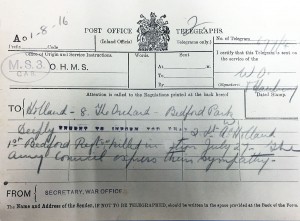 A 01-8-16
POST OFFICE TELEGRAPHS.
(Inland Official Telegrams only.)
No. of Telegram
Office of Origin and Service Instructions.
Words.
I certify that this Telegram is sent on the service of the
M.S.3.
O.H.M.S.
Sent
At
To
By
W.O.
(Signature)
Dated Stamp.
Attention is called to the Regulations printed at the back hereof.
TO Holland - 8 The Orchard - Bedford Park
Deeply REGRET TO INFORM YOU THAT 2 Lt Holland
1st Bedford Regt. killed in action July 27. The
Army Council express their sympathy.
FROM SECRETARY, WAR OFFICE.
The Name and Address of the Sender, IF NOT TO BE TELEGRAPHED, should be written in the space provided at the Back of the Form.